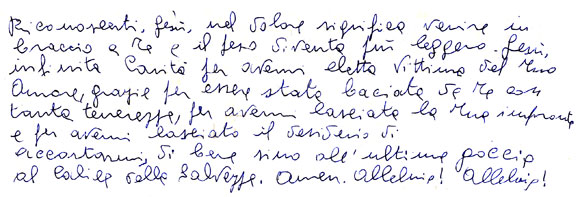 Riconoscerti, Gesù, nel dolore significa venire in
braccio a Te e il peso diventa più leggero. Gesù,
infinita Carità per avermi eletta Vittima del Tuo
Amore, grazie per essere stata baciata da Te con
tanta tenerezza, per avermi lasciata la Tua impronta
e per avermi lasciato il desiderio di
accostarmi, di bere sino all'ultima goccia
al Calice della Salvezza. Amen. Alleluia! Alleluia!